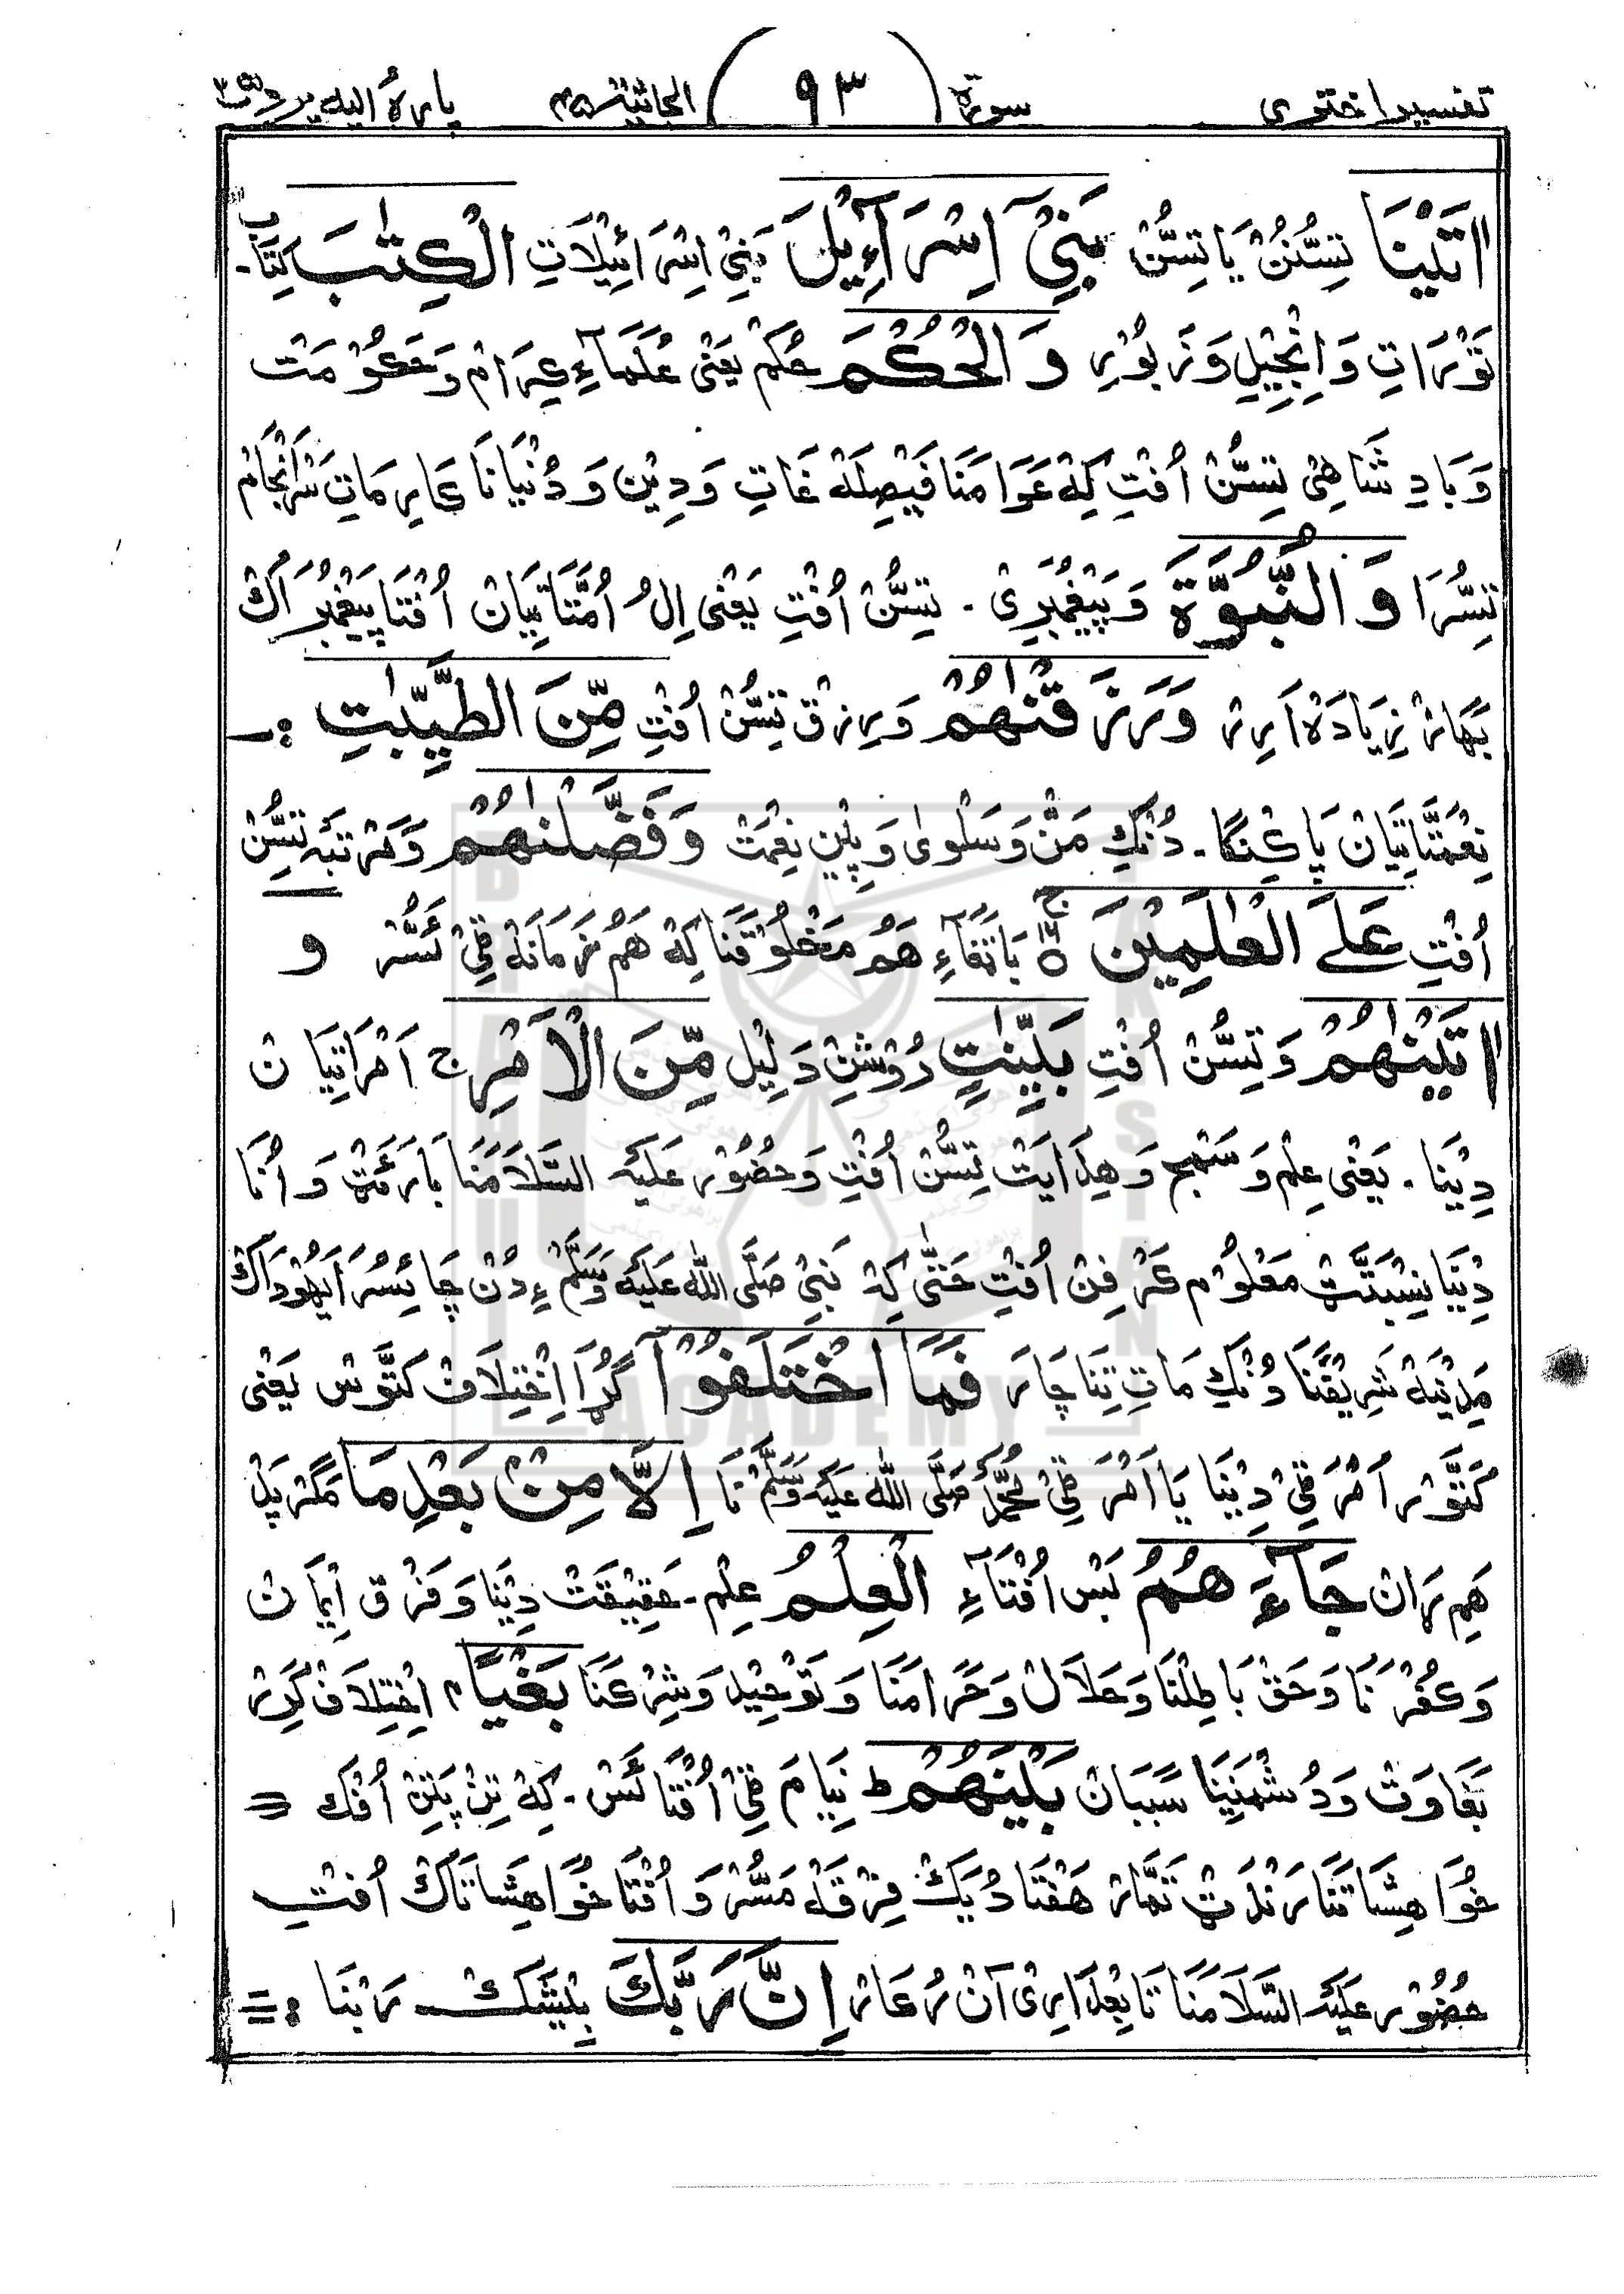 تفسیر اختری سورة (۹۳) الجاثیة ۴۵ پارهٔ الیه یرد ۲۵
اٰتَیْنَا تِسُّنُنْ یَا تِسُّنْ بَنِیْٓ اِسْرَآءِیْلَ بَنِیْ اِسْرَائِیْلَاتِ الْکِتٰبَ کِتَاب۔
تَوْرَاتِ وَ اِنْجِیْلِ وَ زَبُوْرِ وَ الْحُکْمَ حُکم یَعْنٰی عُلَمَآءِ کِرَامْ وَ حَکُوْمَتْ
وَ بَادِشَاهِیْ تِسُّنْ اُفْتِ کِهْ عَوَامَنَا فَیْصِلَهْ غَاتِ وَ دِیْن وَ دُنْیَانَا کَارِیمَاتِ سَرَانْجَامْ
تِسُّرَا وَ النُّبُوَّةَ وَ پَیْغَمْبَرِیْ۔ تِسُّنْ اُفْتِ یَعْنٰی اِلُ اُمَّتَاتِیَانْ اُفْتَا پَیْغَمْبَرَاكْ
بَهَازْ زِیَادَهْ اَرِرْ وَ رَزَقْنٰهُمْ وَ رِزْق تِسُّنْ اُفْتِ مِّنَ الطَّیِّبٰتِ :۔
نِعْمَتَاتِیَانْ پَاکِنْگَا۔ دُنْکِ مَنّ وَ سَلْوٰی وَ پِیْنِ نِعْمَتْ وَ فَضَّلْنٰهُمْ وَ مَرْتَبَه تِسُّنْ
اُفْتِ عَلَی الْعٰلَمِیْنَ ۱۶ بَاتَغَآءِ هَمُ مَخْلُوْقَنَا کِهْ هَمُ زَمَانَهْ قِیْ ئَسُّرْ و
اٰتَیْنٰهُمْ وَ تِسُّنْ اُفْتِ بَیِّنٰتٍ رُوْشِنْ دَلِیْل مِّنَ الْاَمْرِ ج اَمْرَاتِیَانْ
دِیْنَا۔ یَعْنٰی عِلْم وَ سَمْجْ وَ هِدَایَتْ تِسُّنْ اُفْتِ وَ حُضُوْر عَلَیْهِ السَّلَامْنَا بَارَئَتْ وَ اُنَا
دِیْنَا نِسْبَتَتْ مَعْلُوْم کَرْفِنْ اُفْتِ حَتّٰی کِهْ نَبِیْ صَلَّی اللّٰه عَلَیْهِ وَسَلَّمْ ءِ دُنْ چَائِسُّرَ اَیَهُوْدَاكْ
مَدِیْنَهْ شَرِیْفَنَا دُنْکِ مَاتِ تِنَا چَارَ فَمَا اخْتَلَفُوْٓا گُڑَا اِخْتِلَافْ کَتَّوْسْ یَعْنٰی
کَتَّوْرْ اَمْرَ قِیْ دِیْنَا یَا اَمْرَ قِیْ مُحَمَّدْ صَلَّی اللّٰه عَلَیْهِ وَسَلَّمْ نَا اِلَّا مِنْۢ بَعْدِ مَا مَگَرْ پَدْ
هَمِرَانْ جَآءَ هُمُ بَسْ اُفْتَآءِ الْعِلْمُ عِلْم۔ حَقِیْقَتْ دِیْنَا وَ فَرْق اِیْمَانْ
وَ کُفْرْنَا وَ حَقْ بَاطِلْنَا وَ حَلَالْ وَ حَرَامَنَا وَ تَوْحِیْد وَ شِرْکَنَا بَغْیًۢا اِخْتِلَافْ کَرِرْ
بَغَاوَتْ وَ دُشْمَنِیْنَا سَبَبَانْ بَیْنَهُمْ ط نِیَامَ قِیْ اُفْتَا ئَسْ۔ کِهْ تِنْ پَتِنْ اُفْك =
خُوَاهِشَاتَنَا رَنْدَتْ تَمَّارْ هَفْتَادُ یَكْ فِرْقَهْ مَسُّرْ وَ اُفْتَا خُوَاهِشَاتَاكْ اُفْتِ
حُضُوْر عَلَیْهِ السَّلَامْنَا تَابِعْدَارِیْ آنْ رُغَارْ اِنَّ رَبَّكَ بِیْشَكْ رَبْنَا :=